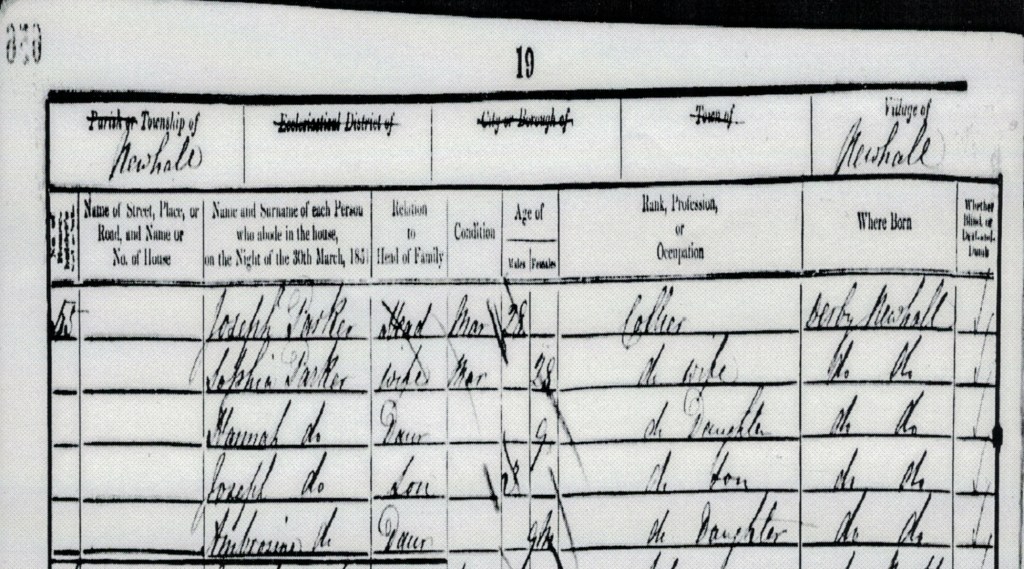 050
19
Parish or Township of
Newhall
Ecclesiastical District of
City or Borough of
Town of
Village of
Newhall
Name of Street, Place, or Road, and Name or No. of House
Name and Surname of each Person who abode in the house, on the Night of the 30th March, 1851
Relation to Head of Family
Condition
Age of
Males Females
Rank, Profession, or Occupation
Where Born
Whether Blind, or Deaf-and-Dumb
Joseph Parker Head Mar 28 Collier Derby Newhall
Sophia Parker wife Mar 28 do wife do do
Hannah do Daur 9 do Daughter do do
Joseph do Son do Son do do
Ambrosine do Daur 9M do Daughter do do